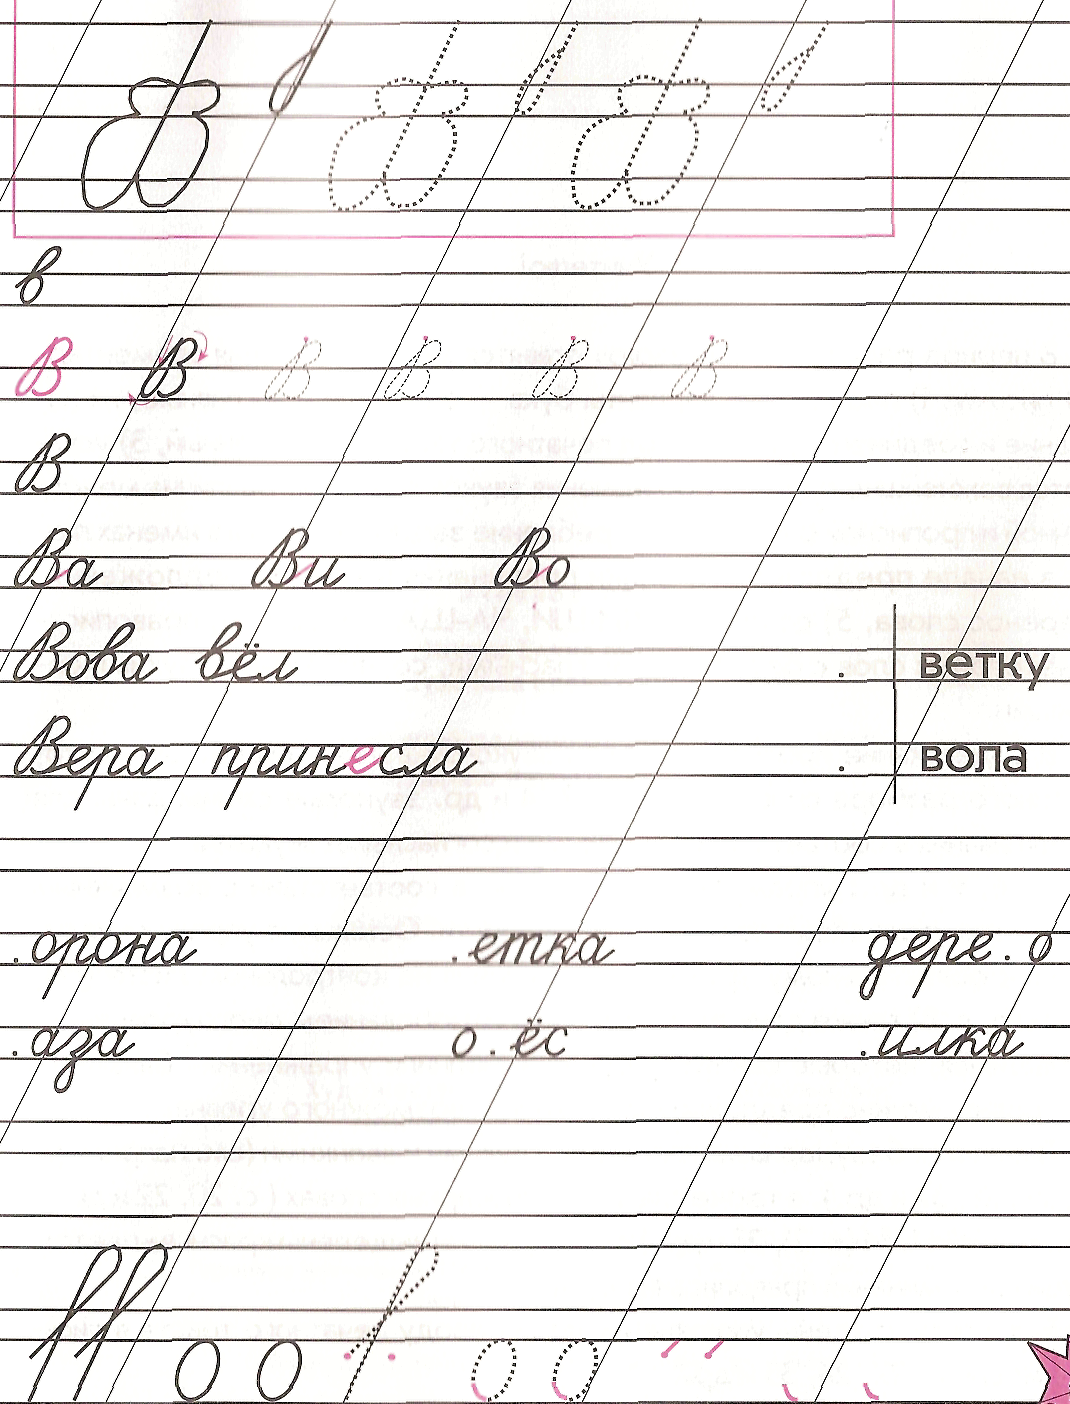 в
В В В В В В
В
Ва Ви Во
Вова вёл . ветку
Вера принесла . вола
.орона .етка дере.о
.аза о.ёс .илка